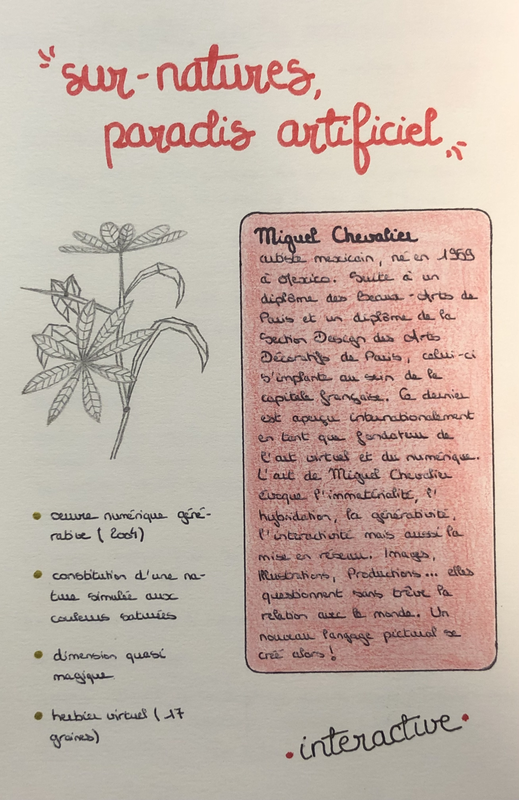 "sur-natures,
paradis artificiel"
Miguel Chevalier
artiste mexicain, né en 1959
à Mexico. Suite à un
diplôme des Beaux-Arts de
Paris et un diplôme de la
Section Design des Arts
Décoratifs de Paris, celui-ci
s'implante au sein de la
capitale française. Ce dernier
est aperçu internationalement
en tant que fondateur de
l'art virtuel et du numérique.
L'art de Miguel Chevalier
évoque l'immatérialité, l'
hybridation, la générativité,
l'interactivité mais aussi la
mise en réseau. Images,
Illustrations, Productions... elles
questionnent sans trêve la
relation avec le monde. Un
nouveau langage pictural se
créé alors !
• oeuvre numérique géné-
rative (2004)
• constitution d'une na-
ture simulée aux
couleurs saturées
• dimension quasi
magique
• herbier virtuel (17
graines)
• interactive •